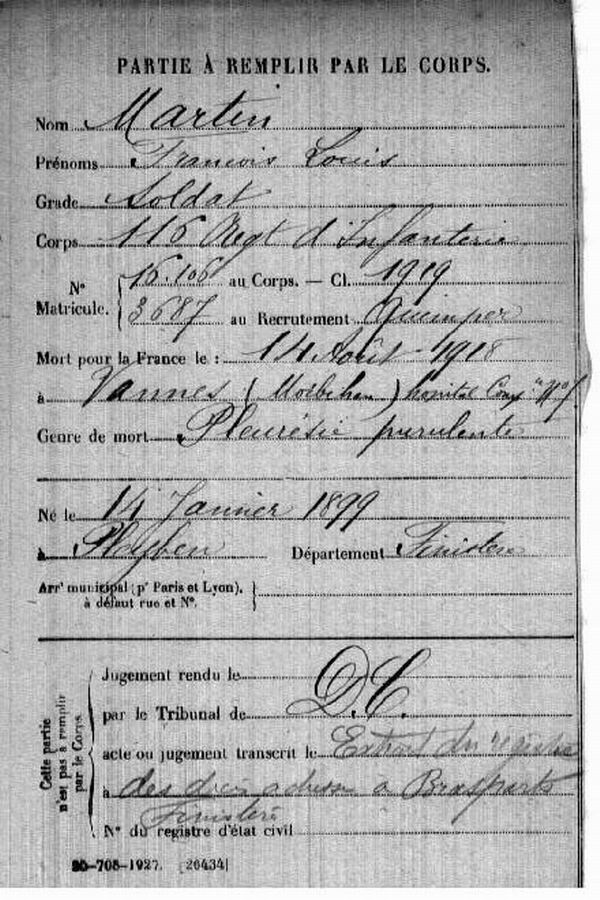 PARTIE À REMPLIR PAR LE CORPS.
Nom Martin
Prénoms François Louis
Grade Soldat
Corps 116 Regt d'Infanterie
N° Matricule.
16.106 au Corps. — Cl. 1919
3687 au Recrutement Quimper
Mort pour la France le : 14 Août 1918
à Vannes (Morbihan) hopital Comp
Genre de mort Pleurésie purulente
Né le 14 Janvier 1899
à Pleyben Département Finistère
Arrt municipal (pr Paris et Lyon),
à défaut rue et N°.
Cette partie
n'est pas à remplir
par le Corps.
Jugement rendu le
par le Tribunal de D.C.
acte ou jugement transcrit le Extrait du registre
à des décès adressé à Brasparts
Finistère
N° du registre d'état civil
-708-1927. [26434]